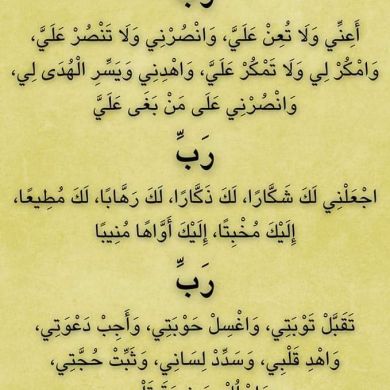 رَبِّ
أَعِنِّي وَلَا تُعِنْ عَلَيَّ، وَانْصُرْنِي وَلَا تَنْصُرْ عَلَيَّ،
وَامْكُرْ لِي وَلَا تَمْكُرْ عَلَيَّ، وَاهْدِنِي وَيَسِّرِ الْهُدَى لِي،
وَانْصُرْنِي عَلَى مَنْ بَغَى عَلَيَّ
رَبِّ
اجْعَلْنِي لَكَ شَكَّارًا، لَكَ ذَكَّارًا، لَكَ رَهَّابًا، لَكَ مُطِيعًا،
إِلَيْكَ مُخْبِتًا، إِلَيْكَ أَوَّاهًا مُنِيبًا
رَبِّ
تَقَبَّلْ تَوْبَتِي، وَاغْسِلْ حَوْبَتِي، وَأَجِبْ دَعْوَتِي،
وَاهْدِ قَلْبِي، وَسَدِّدْ لِسَانِي، وَثَبِّتْ حُجَّتِي،